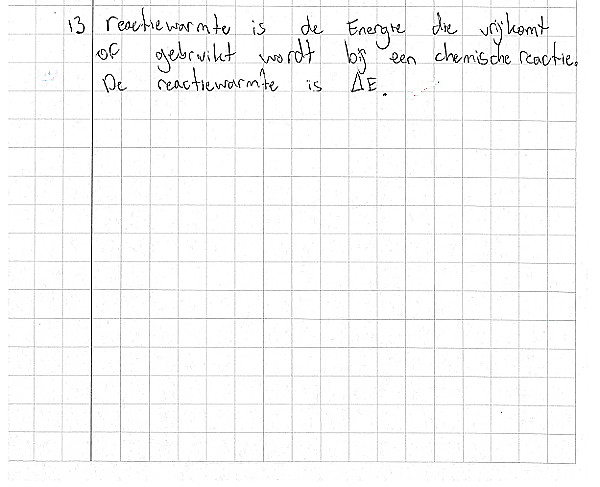 13 reactiewarmte is de Energie die vrijkomt
of gebruikt wordt bij een chemische reactie.
De reactiewarmte is ΔE.